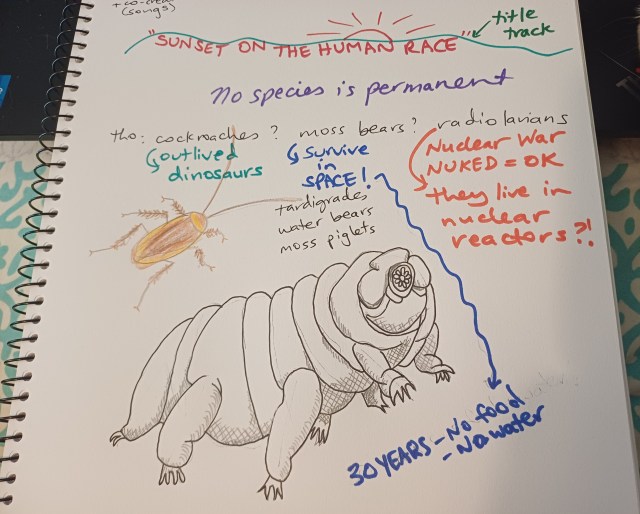 (songs)
"SUNSET ON THE HUMAN RACE"
title
track
No species is permanent
tho: cockroaches? moss bears? radiolarians
outlived
dinosaurs
survive
in
SPACE!
Nuclear War
NUKED = OK
they live in
nuclear
reactors?!
tardigrades
water bears
moss piglets
30 YEARS - No food
- No water